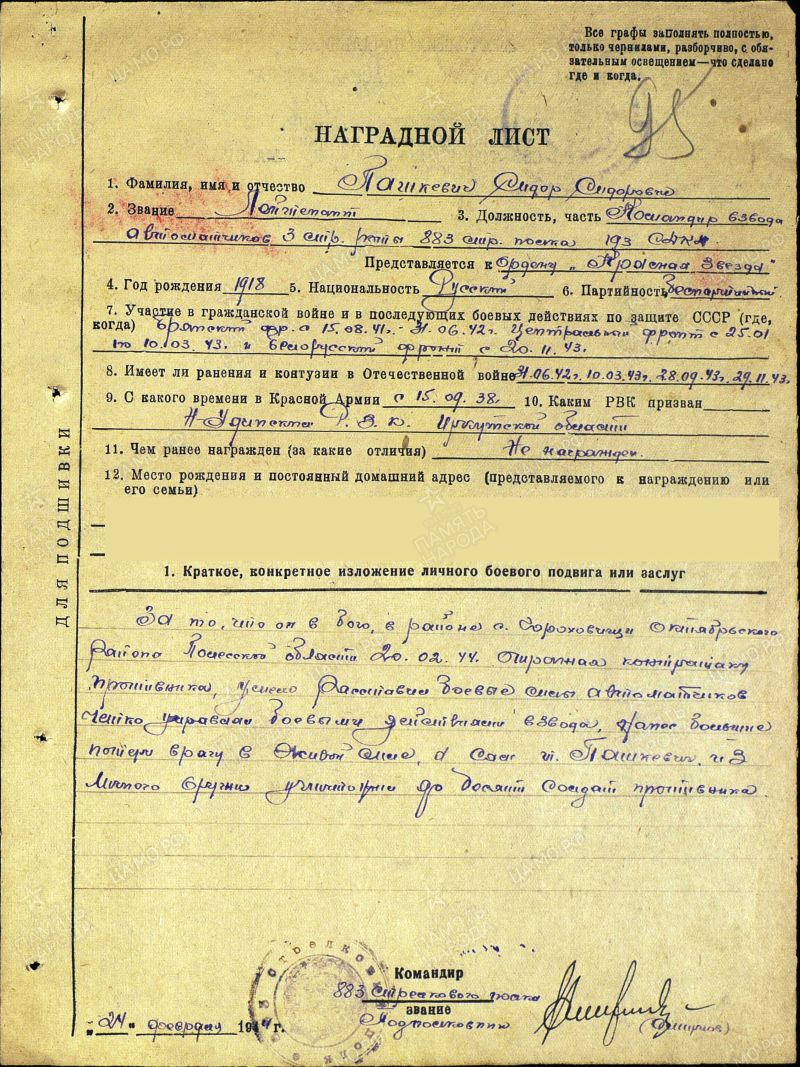 Все графы заполнять полностью,
только чернилами, разборчиво, с обя-
зательным освещением—что сделано
где и когда.
95
НАГРАДНОЙ ЛИСТ
1. Фамилия, имя и отчество Пашкевич Сидор Сидорович
2. Звание Лейтенант 3. Должность, часть Командир взвода
автоматчиков 3 стр. роты 883 стр. полка 193 СДКА
Представляется к Ордену „Красная Звезда"
4. Год рождения 1918 5. Национальность Русский 6. Партийность Беспартийный
7. Участие в гражданской войне и в последующих боевых действиях по защите СССР (где,
когда) Брянский фр. с 15.08.41г.-31.06.42г. Центральный фронт с 25.01
по 10.03.43г. и Белорусский фронт с 20.11.43г.
8. Имеет ли ранения и контузии в Отечественной войне 31.06.42г. 10.03.43г. 28.09.43г. 29.11.43г.
9. С какого времени в Красной Армии с 15.09.38г. 10. Каким РВК призван
Н-Удинским Р.В.К. Иркутской области
11. Чем ранее награжден (за какие отличия) Не награжден.
12. Место рождения и постоянный домашний адрес (представляемого к награждению или
его семьи)
ДЛЯ ПОДШИВКИ
1. Краткое, конкретное изложение личного боевого подвига или заслуг
За то, что он в бою, в районе с. Гороховищи Октябрьского
района Полесской области 20.02.44. отражая контратаку
противника, умело расставил боевые силы автоматчиков
четко управлял боевыми действиями взвода, нанес большие
потери врагу в живой силе, а сам т. Пашкевич из
личного оружия уничтожил до десяти солдат противника.
Командир
883 стрелкового полка
звание
Подполковник
(Смирнов)
„24" февраля 1944 г.